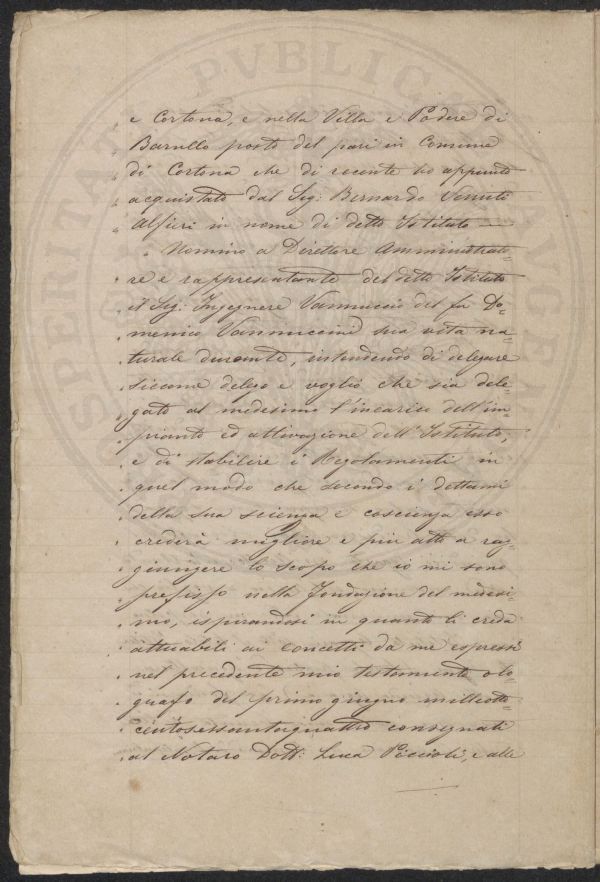 e Cortona, e nella Villa e Podere di
Barullo posto del pari in Comune
di Cortona che di recente ho appunto
acquistato dal Sig: Bernardo Venuti
Alfieri in nome di detto Istituto —
" Nomino a Direttore Amministrato=
re e rappresentante del detto Istituto
il Sig: Ingegnere Vannuccio del fu Do=
menico Vannuccini sua vita na=
turale durante, intendendo di delegare
siccome delego e voglio che sia dele=
gato al medesimo l'incarico dell'im=
pianto ed attivazione dell'Istituto,
e di stabilire i Regolamenti in
quel modo che secondo i dettami
della sua scienza e coscienza esso
crederà migliore e più atto a rag=
giungere lo scopo che io mi sono
prefisso nella fondazione del medesi=
mo, ispirandosi in quanto li creda
attuabili ai concetti da me espressi
nel precedente mio testamento olo=
grafo del primo giugno milleotto
centosessantaquattro consegnato
al Notaro Dott: Luca Piccioli, e alle